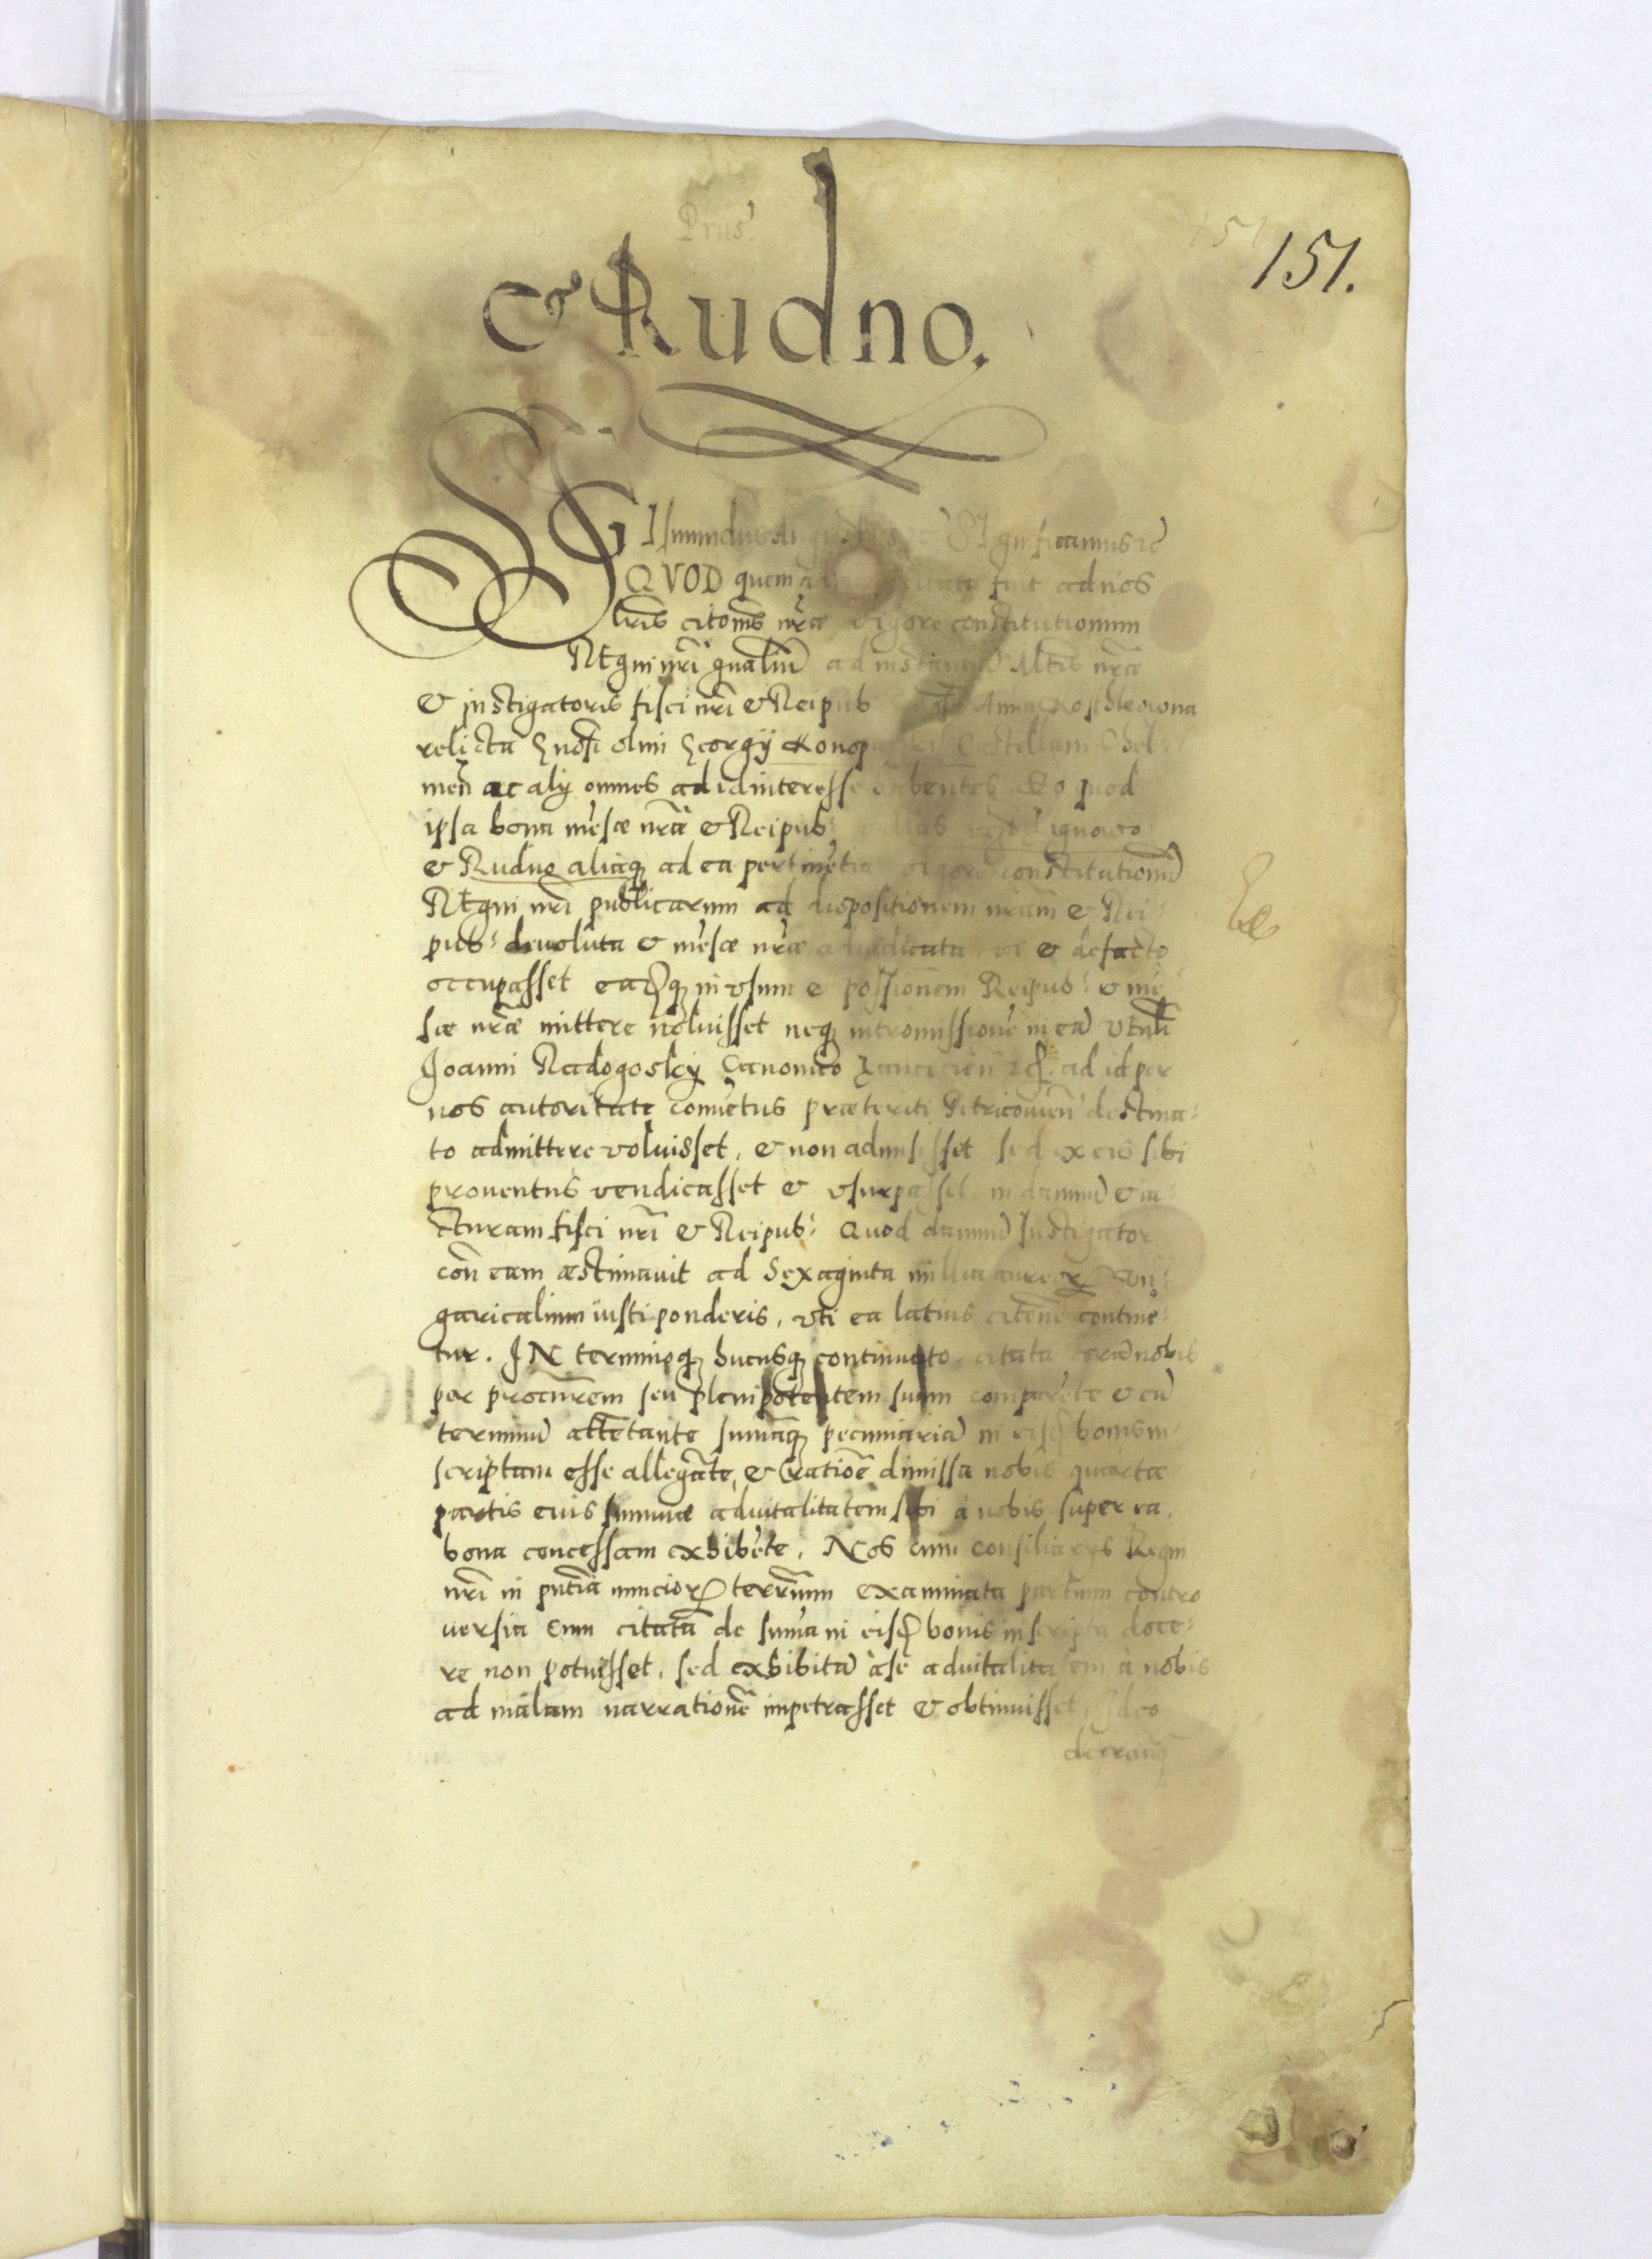 Prus:
151.
& Rudno.
SIGIsmundus Augustus Significamus &c
QVOD quem fuit ad nos
lris citonis nrae vigore constitutionum
REgni nri gnalium ad instantiam nrae
& instigatoris fisci nri & Reipub Anna Kostkowna
relicta Gnosi olim Georgij Konopaczkij Castellani Chel
men ac alij omnes ad id interesse habentes Eo quod
ipsa bona mesae nrae & Reipub: Lignowo
& Rudno aliaq ad ea pertinetia vigore constitutionu
REgni nri publicarum ad dispositionem nram & Rei-
pub: devoluta & mesae nrae adiudicata vi & de facto
occupasset eadq in vsum & possionem Reipub: & me-
sae nrae mittere noluisset neq intromissione in ea venli
Joanni Radogosky Canonico ad id per
nos autoritate conuetus praeteriti Petricouien destina-
to admittere voluisset, & non admisisset sed ex eis sibi
prouentus vendicasset & vsurpasset in damnu & ia-
cturam fisci nri & Reipub: Quod damnu Instigator
con eam aestimauit ad Sexaginta millia aureor Vn-
garicalium iusti ponderis, vti ea latius citone contine-
tur. IN terminoq hucusq continuato, citata cora nobis
per procurem seu plenipotentem suum comparete & eu
terminu attetante sumaq pecuniaria in eisd bonis in-
scriptam esse allegate, & ratioe dimissa nobis quarta
partis eius summae aduitalitatem sibi a nobis super ea
bona concessam exhibete. Nos cum consiliarys Regni
nri in pntia nuncior terrium examinata partium contro
uersia Cum citata de suma in eisd bonis inscripta doce-
re non potuisset, sed exhibita a se aduitalitatem a nobis
ad malam narratione impetrasset & obtinuisset, Ideo